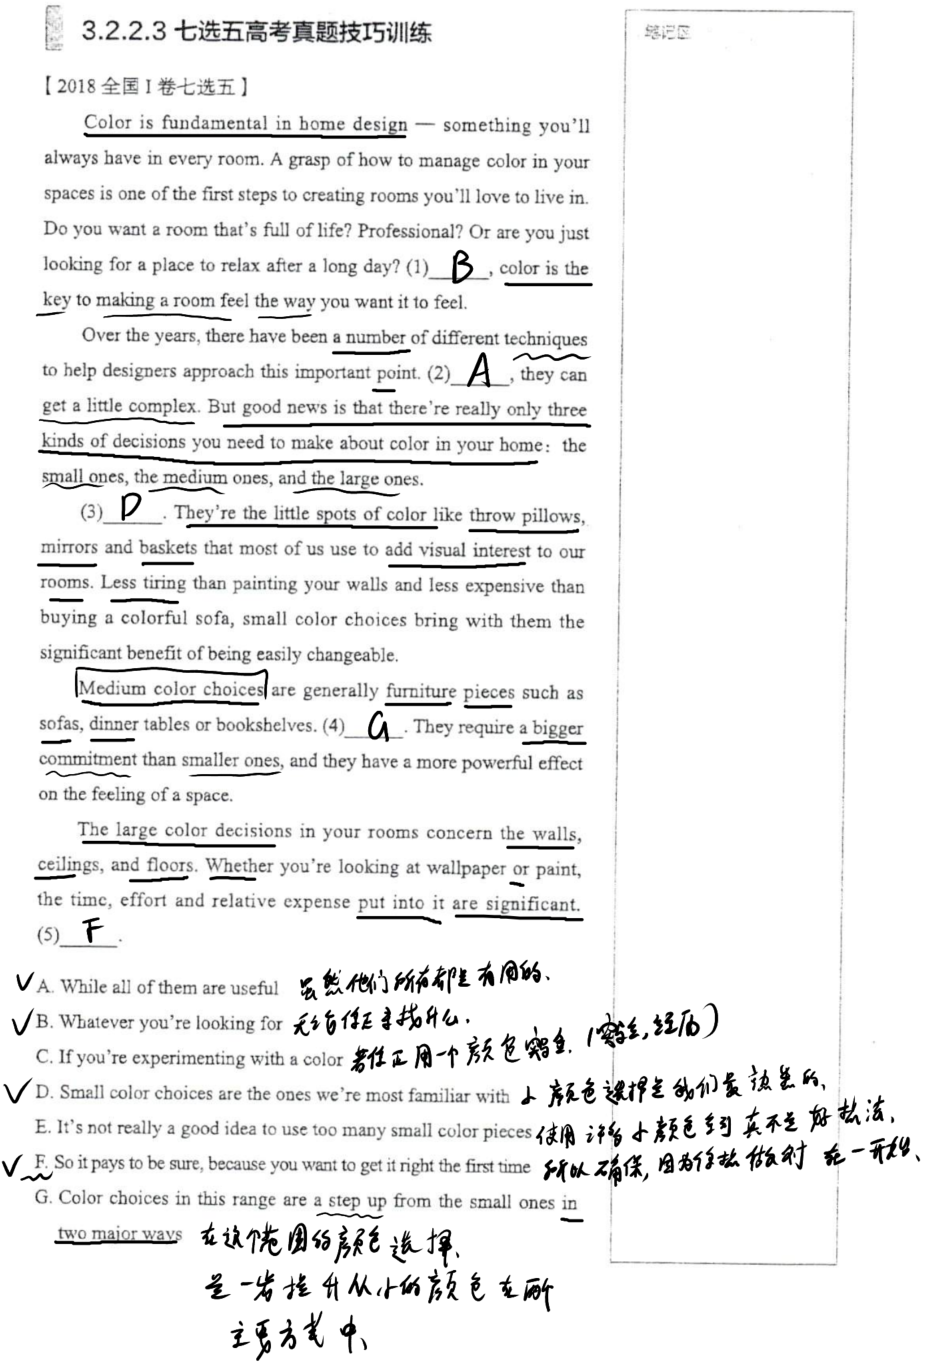 3.2.2.3 七选五高考真题技巧训练
笔记区
【2018 全国 I 卷七选五】
Color is fundamental in home design — something you'll
always have in every room. A grasp of how to manage color in your
spaces is one of the first steps to creating rooms you'll love to live in.
Do you want a room that's full of life? Professional? Or are you just
looking for a place to relax after a long day? (1) B , color is the
key to making a room feel the way you want it to feel.
Over the years, there have been a number of different techniques
to help designers approach this important point. (2) A , they can
get a little complex. But good news is that there're really only three
kinds of decisions you need to make about color in your home: the
small ones, the medium ones, and the large ones.
(3) D . They're the little spots of color like throw pillows,
mirrors and baskets that most of us use to add visual interest to our
rooms. Less tiring than painting your walls and less expensive than
buying a colorful sofa, small color choices bring with them the
significant benefit of being easily changeable.
Medium color choices are generally furniture pieces such as
sofas, dinner tables or bookshelves. (4) G . They require a bigger
commitment than smaller ones, and they have a more powerful effect
on the feeling of a space.
The large color decisions in your rooms concern the walls,
ceilings, and floors. Whether you're looking at wallpaper or paint,
the time, effort and relative expense put into it are significant.
(5) F .
A. While all of them are useful 虽然他们所有都是有用的、
B. Whatever you're looking for 无论你正寻找什么.
C. If you're experimenting with a color 若你正用一个颜色实验.
D. Small color choices are the ones we're most familiar with 小颜色选择是我们最熟悉的、
E. It's not really a good idea to use too many small color pieces 使用许多小颜色 真不是好想法、
F. So it pays to be sure, because you want to get it right the first time 所以确保, 因为你想做对 在一开始、
G. Color choices in this range are a step up from the small ones in
two major ways 在这个范围的颜色选择、
是一些提升从小的颜色在两个
主要方式中、